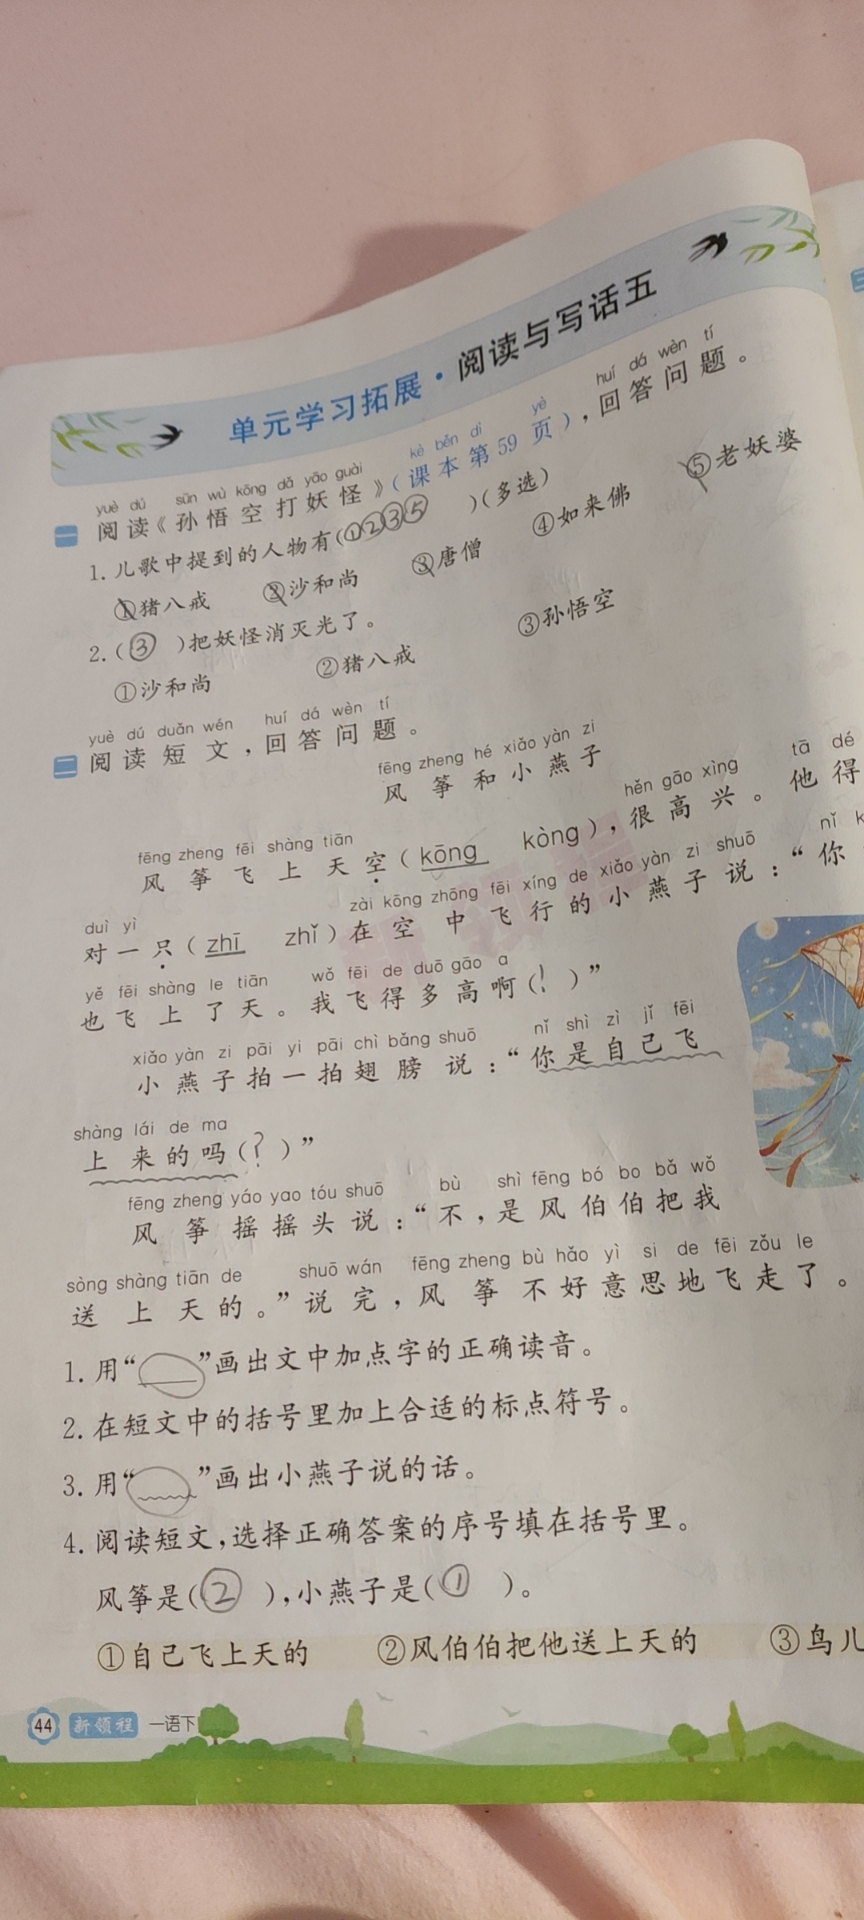 单元学习拓展·阅读与写话五
yuè dú sūn wù kōng dǎ yāo guài kè běn dì yè huí dá wèn tí
一 阅读《孙悟空打妖怪》(课本第59页),回答问题。
1.儿歌中提到的人物有(①②③⑤)(多选)
①猪八戒 ②沙和尚 ③唐僧 ④如来佛 ⑤老妖婆
2.(③)把妖怪消灭光了。
①沙和尚 ②猪八戒 ③孙悟空
yuè dú duǎn wén huí dá wèn tí
二 阅读短文,回答问题。
fēng zheng hé xiǎo yàn zi
风筝和小燕子
fēng zheng fēi shàng tiān hěn gāo xìng tā dé
风筝飞上天空(kōng kòng),很高兴。他得
duì yì zài kōng zhōng fēi xíng de xiǎo yàn zi shuō nǐ
对一只(zhī zhǐ)在空中飞行的小燕子说:“你
yě fēi shàng le tiān wǒ fēi de duō gāo a
也飞上了天。我飞得多高啊(!)”
xiǎo yàn zi pāi yi pāi chì bǎng shuō nǐ shì zì jǐ fēi
小燕子拍一拍翅膀说:“你是自己飞
shàng lái de ma
上来的吗(?)”
fēng zheng yáo yao tóu shuō bù shì fēng bó bo bǎ wǒ
风筝摇摇头说:“不,是风伯伯把我
sòng shàng tiān de shuō wán fēng zheng bù hǎo yì si de fēi zǒu le
送上天的。”说完,风筝不好意思地飞走了。
1.用“___”画出文中加点字的正确读音。
2.在短文中的括号里加上合适的标点符号。
3.用“﹏﹏”画出小燕子说的话。
4.阅读短文,选择正确答案的序号填在括号里。
风筝是(②),小燕子是(①)。
①自己飞上天的 ②风伯伯把他送上天的 ③鸟儿
44 新领程 一语下